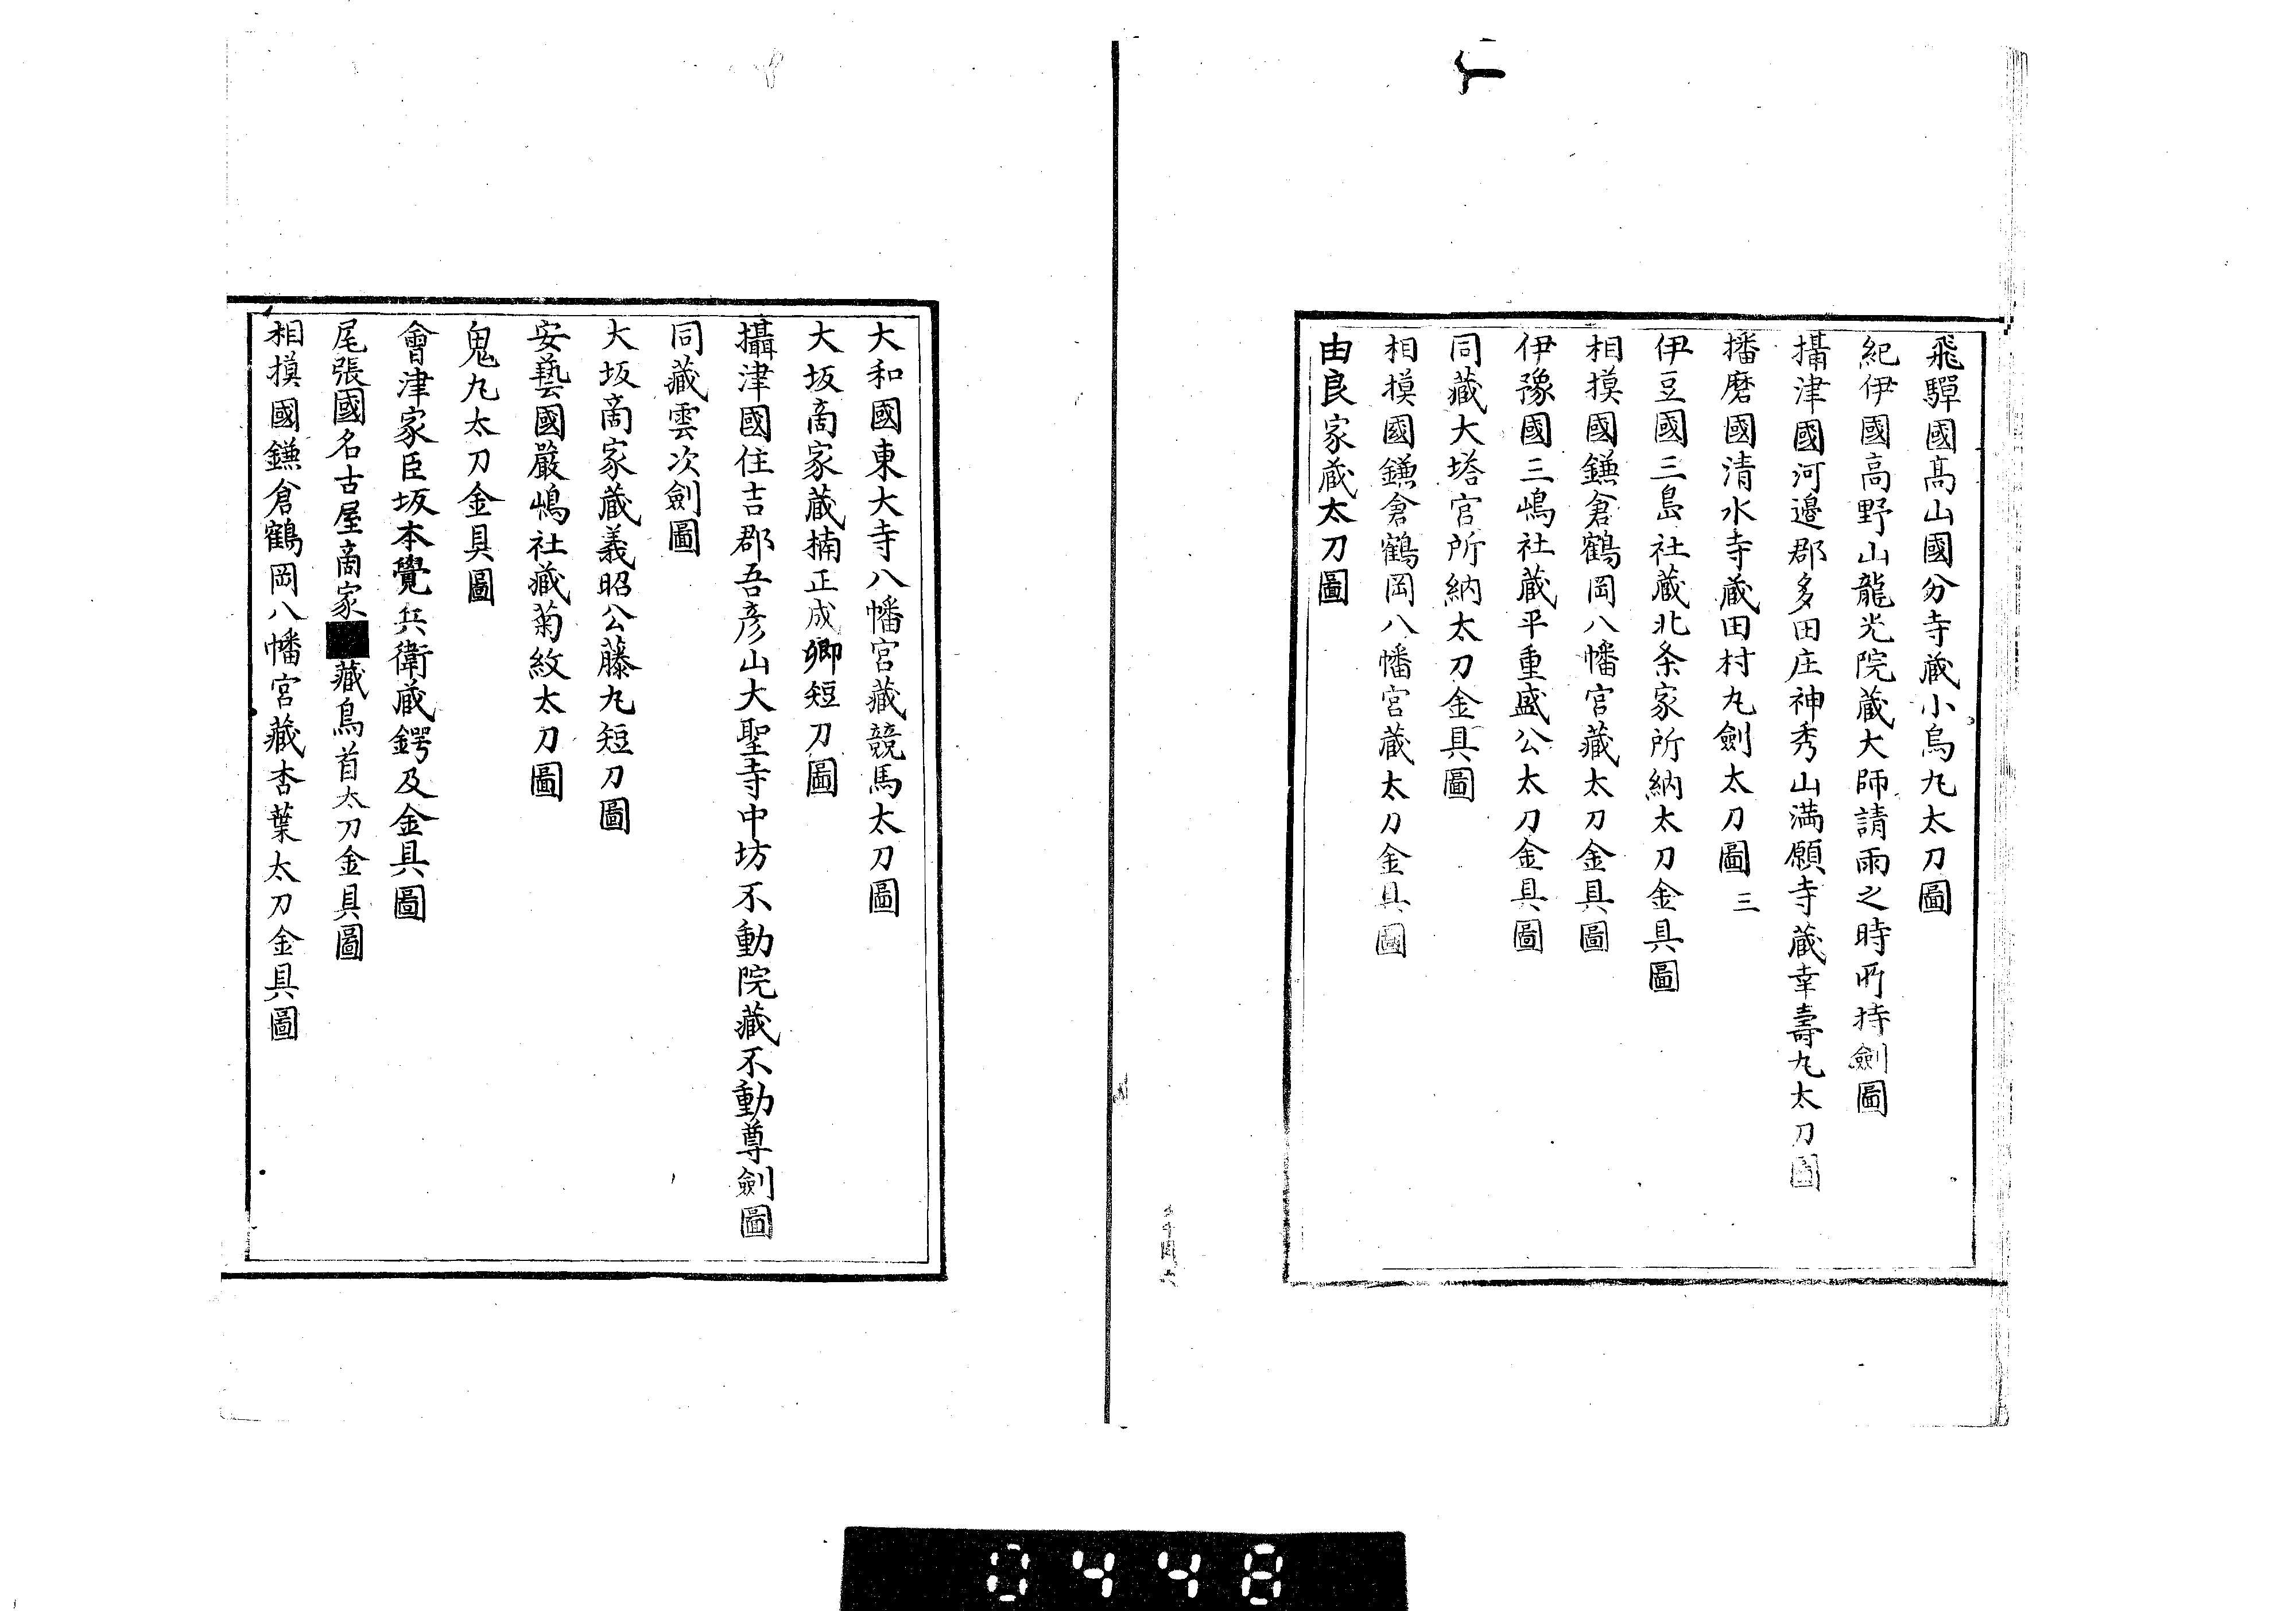 飛驒國髙山國分寺蔵小烏丸太刀圖
紀伊國高野山龍光院蔵大師請雨之時所持劍圖
攝津國河邊郡多田庄神秀山満願寺蔵幸壽丸太刀圖
播磨國清水寺蔵田村丸劍太刀圖 三
伊豆國三島社蔵北条家所納太刀金具圖
相摸國鎌倉鶴岡八幡宮藏太刀金具圖
伊豫國三嶋社蔵平重盛公太刀金具圖
同藏大塔宮所納太刀金具圖
相摸國鎌倉鶴岡八幡宮蔵太刀金具圖
由良家蔵太刀圖
大和國東大寺八幡宮藏競馬太刀圖
大坂商家蔵楠正成卿短刀圖
攝津國住吉郡吾彦山大聖寺中坊不動院藏不動尊劍圖
同藏雲次劍圖
大坂商家蔵義昭公藤丸短刀圖
安藝國嚴嶋社藏菊紋太刀圖
鬼丸太刀金具圖
會津家臣坂本覺兵衛蔵鍔及金具圖
尾張國名古屋商家藏鳥首太刀金具圖
相摸國鎌倉鶴岡八幡宮藏杏葉太刀金具圖
0448